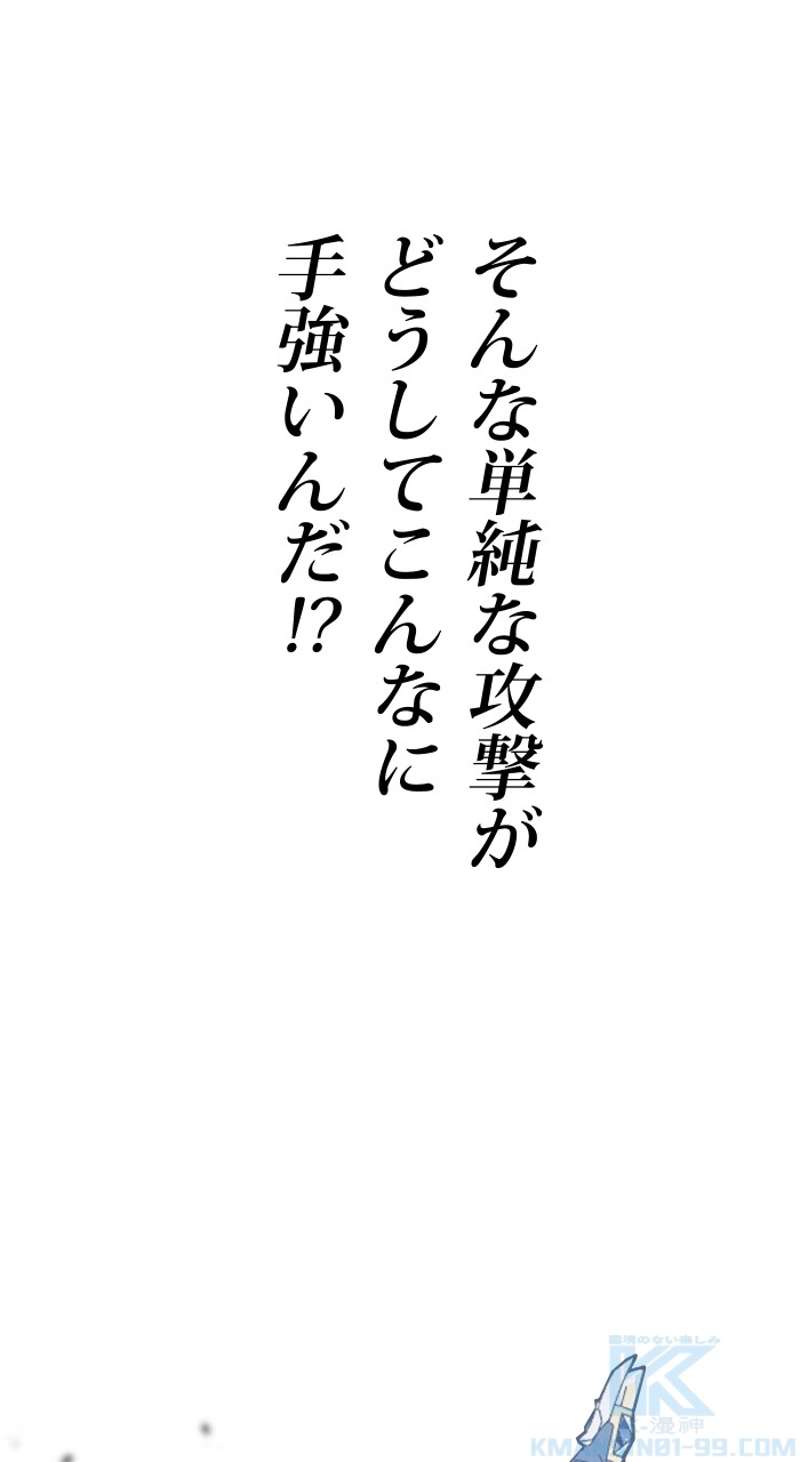 そんな単純な攻撃が
どうしてこんなに
手強いんだ!?
K-漫神